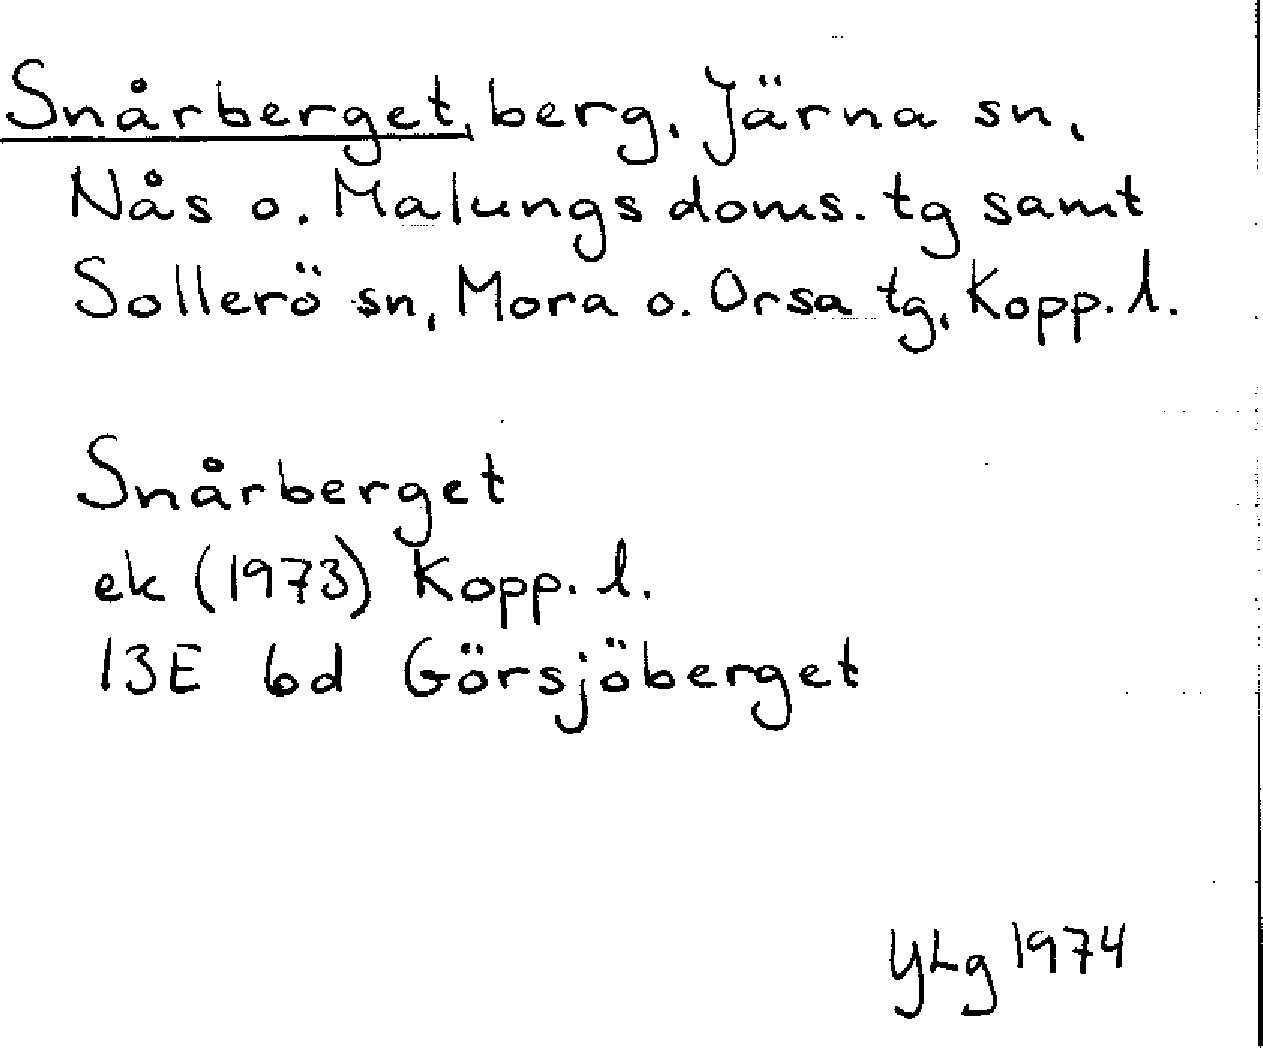 Snårberget, berg, Järna sn,
Nås o. Malungs doms. tg samt
Sollerö sn, Mora o. Orsa tg, Kopp. l.
Snårberget
ek (1973) Kopp. l.
13E 6d Görsjöberget
YLg 1974